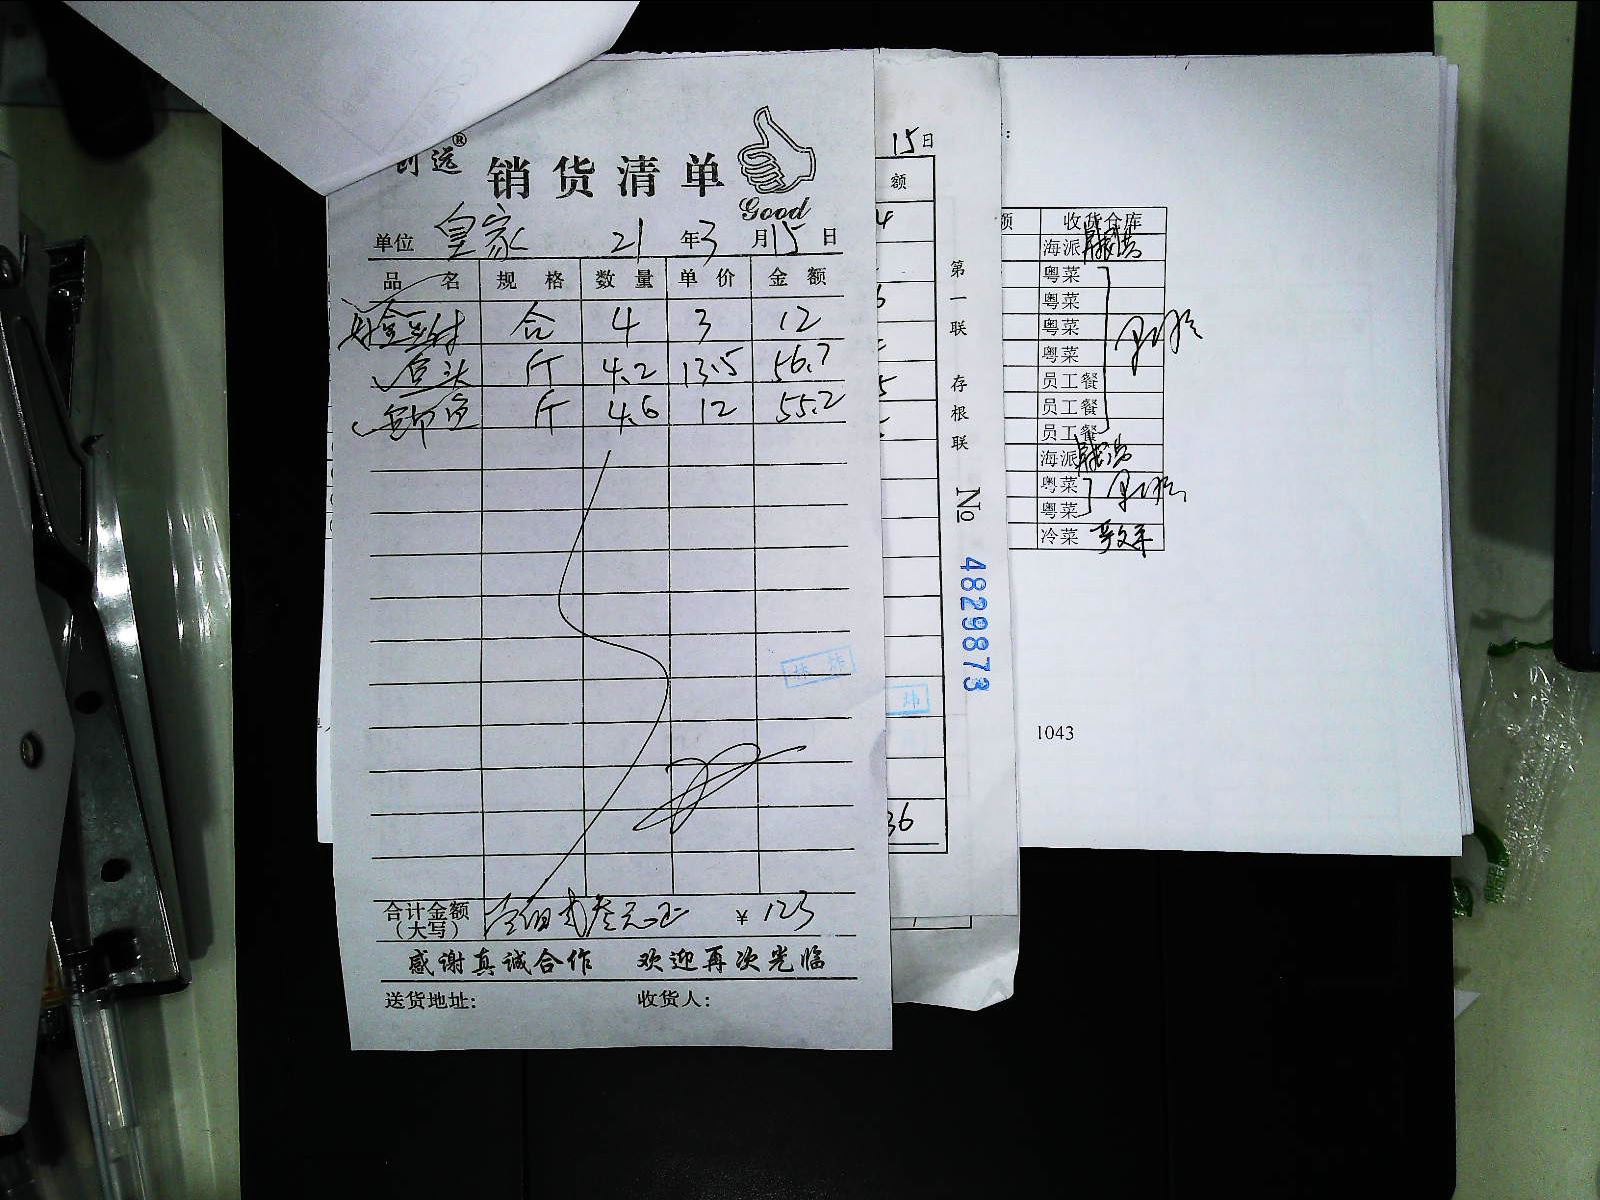 创远®
销货清单
Good
单位 皇家 21年3月15日
品名 规格 数量 单价 金额
合 4 3 12
斤 4.2 13.5 56.7
斤 4.6 12 55.2
合计金额
(大写) 壹佰贰 叁元正 ¥ 123
感谢真诚合作 欢迎再次光临
送货地址: 收货人:
15日
额
36
第一联 存根联 № 4829873
额 收货仓库
海派
粤菜
粤菜
粤菜
粤菜
员工餐
员工餐
员工餐
海派
粤菜
粤菜
冷菜
1043